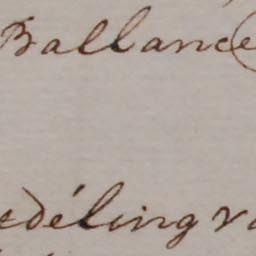 Ballance
edéling va